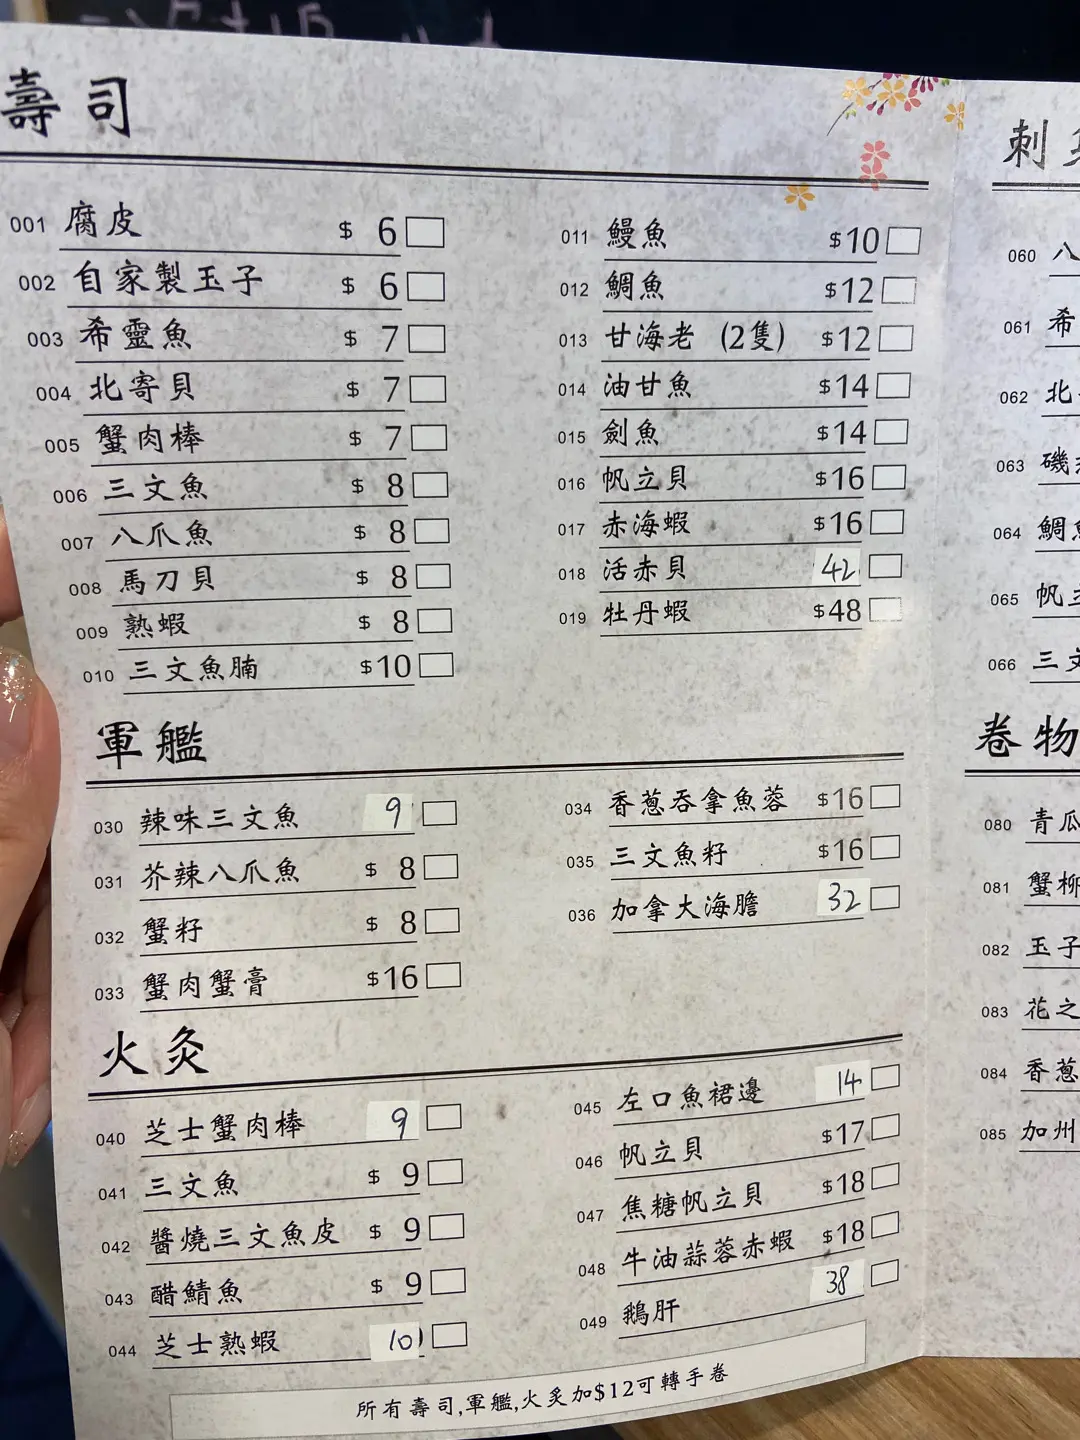 壽司
001 腐皮 $ 6
002 自家製玉子 $ 6
003 希靈魚 $ 7
004 北寄貝 $ 7
005 蟹肉棒 $ 7
006 三文魚 $ 8
007 八爪魚 $ 8
008 馬刀貝 $ 8
009 熟蝦 $ 8
010 三文魚腩 $10
011 鰻魚 $10
012 鯛魚 $12
013 甘海老 (2隻) $12
014 油甘魚 $14
015 劍魚 $14
016 帆立貝 $16
017 赤海蝦 $16
018 活赤貝 42
019 牡丹蝦 $48
軍艦
030 辣味三文魚 9
031 芥辣八爪魚 $ 8
032 蟹籽 $ 8
033 蟹肉蟹膏 $16
034 香蔥吞拿魚蓉 $16
035 三文魚籽 $16
036 加拿大海膽 32
火炙
040 芝士蟹肉棒 9
041 三文魚 $ 9
042 醬燒三文魚皮 $ 9
043 醋鯖魚 $ 9
044 芝士熟蝦 10
045 左口魚裙邊 14
046 帆立貝 $17
047 焦糖帆立貝 $18
048 牛油蒜蓉赤蝦 $18
049 鵝肝 38
所有壽司,軍艦,火炙加$12可轉手卷
刺
060 八
061 希
062 北
063 磯
064 鯛
065 帆立
066 三文
卷物
080 青瓜
081 蟹柳
082 玉子
083 花之
084 香蔥
085 加州